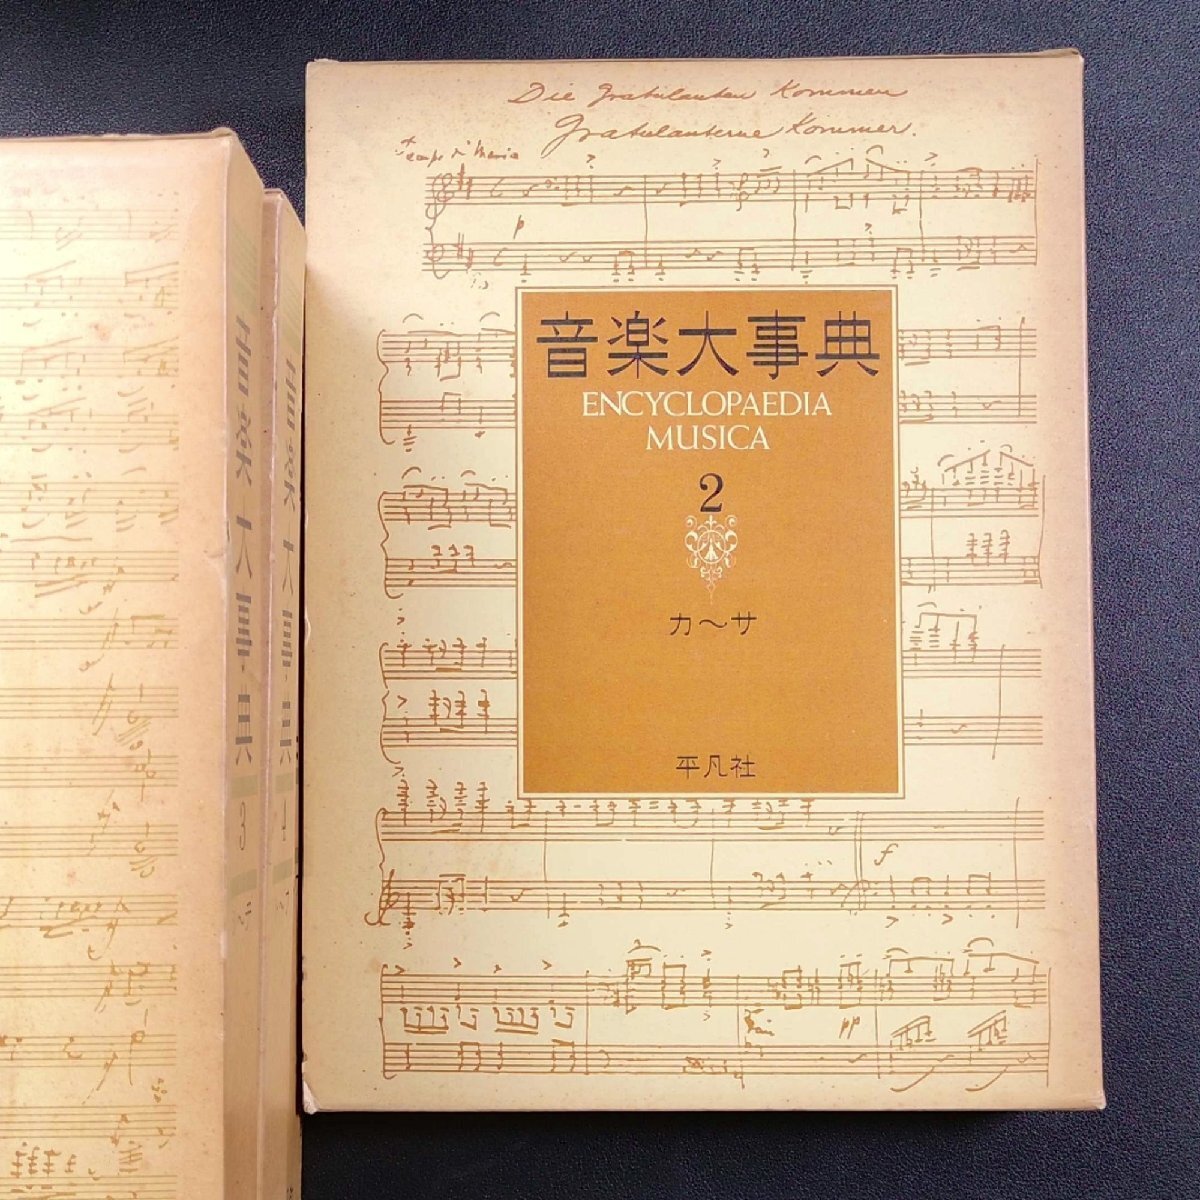 Die Gratulanten Kommen
Gratulanterne Kommer.
Tempo di Marcia
p
音楽大事典
ENCYCLOPAEDIA
MUSICA
2
カ〜サ
平凡社
f
pp
音楽大事典 3
音楽大事典 4